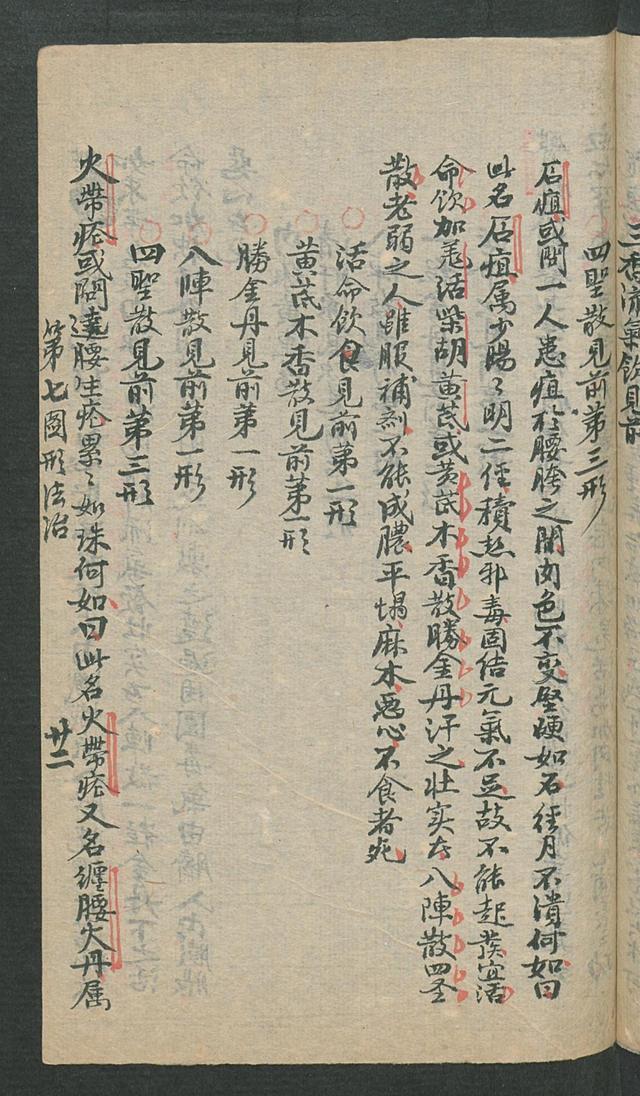 三香流氣飲見前
四聖散見前第三形
石疽或問一人患疽於腰胯之間肉色不變堅硬如石經月不潰何如曰
此名石疽属少陽々明二経積熱邪毒固结元氣不足故不能起發宜活
命饮加羗活柴胡黄芪或黄芪木香散勝金丹汗之壮实者八陣散四圣
散老弱之人雖服補剂不能成膿平塌麻木恶心不食者死
活命飲見前第一形
黄芪木香散見前第一形
勝金丹見前第一形
八陣散見前第一形
四聖散見前第三形
火帶疮或問遶腰生疮累々如珠何如曰此名火帶疮又名纏腰火丹属
第七圖形法治 廿二